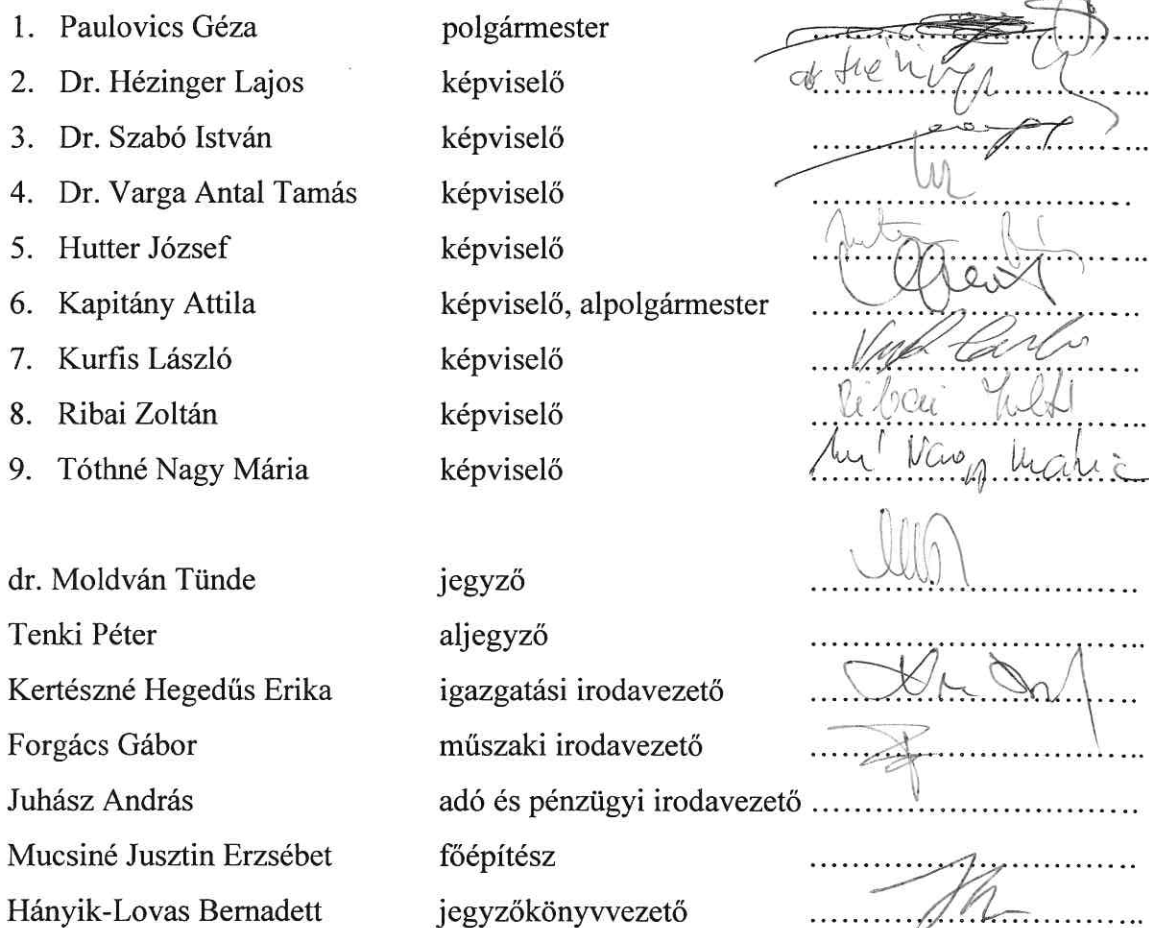 1. Paulovics Géza polgármester ....................
2. Dr. Hézinger Lajos képviselő ....................
3. Dr. Szabó István képviselő ....................
4. Dr. Varga Antal Tamás képviselő ....................
5. Hutter József képviselő ....................
6. Kapitány Attila képviselő, alpolgármester ....................
7. Kurfis László képviselő ....................
8. Ribai Zoltán képviselő Ribai ....................
9. Tóthné Nagy Mária képviselő Nagy Mária ....................
dr. Moldván Tünde jegyző ....................
Tenki Péter aljegyző ....................
Kertészné Hegedűs Erika igazgatási irodavezető ....................
Forgács Gábor műszaki irodavezető ....................
Juhász András adó és pénzügyi irodavezető ....................
Mucsiné Jusztin Erzsébet főépítész ....................
Hányik-Lovas Bernadett jegyzőkönyvvezető ....................